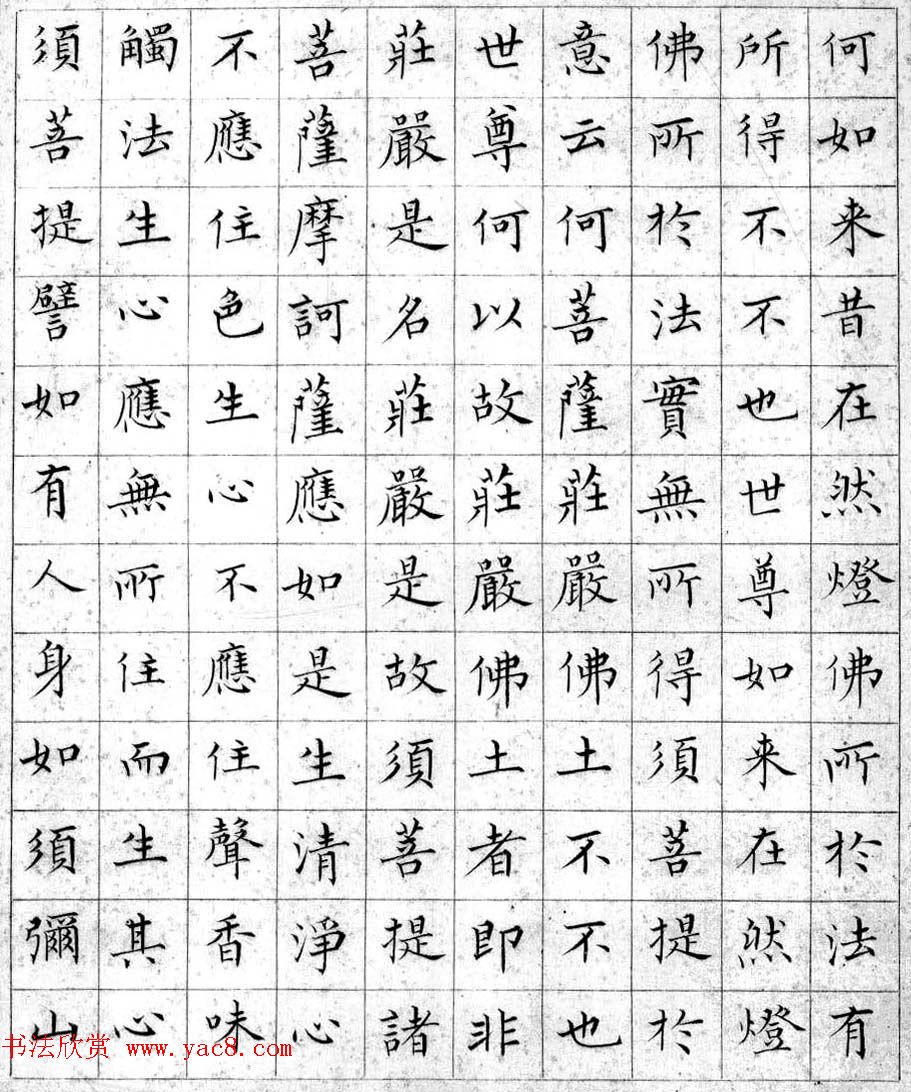 何如来昔在然燈佛所於法有
所得不不也世尊如来在然燈
佛所於法實無所得須菩提於
意云何菩薩莊嚴佛土不不也
世尊何以故莊嚴佛土者即非
莊嚴是名莊嚴是故須菩提諸
菩薩摩訶薩應如是生清淨心
不應住色生心不應住聲香味
觸法生心應無所住而生其心
須菩提譬如有人身如須彌山
书法欣赏 www.yac8.com